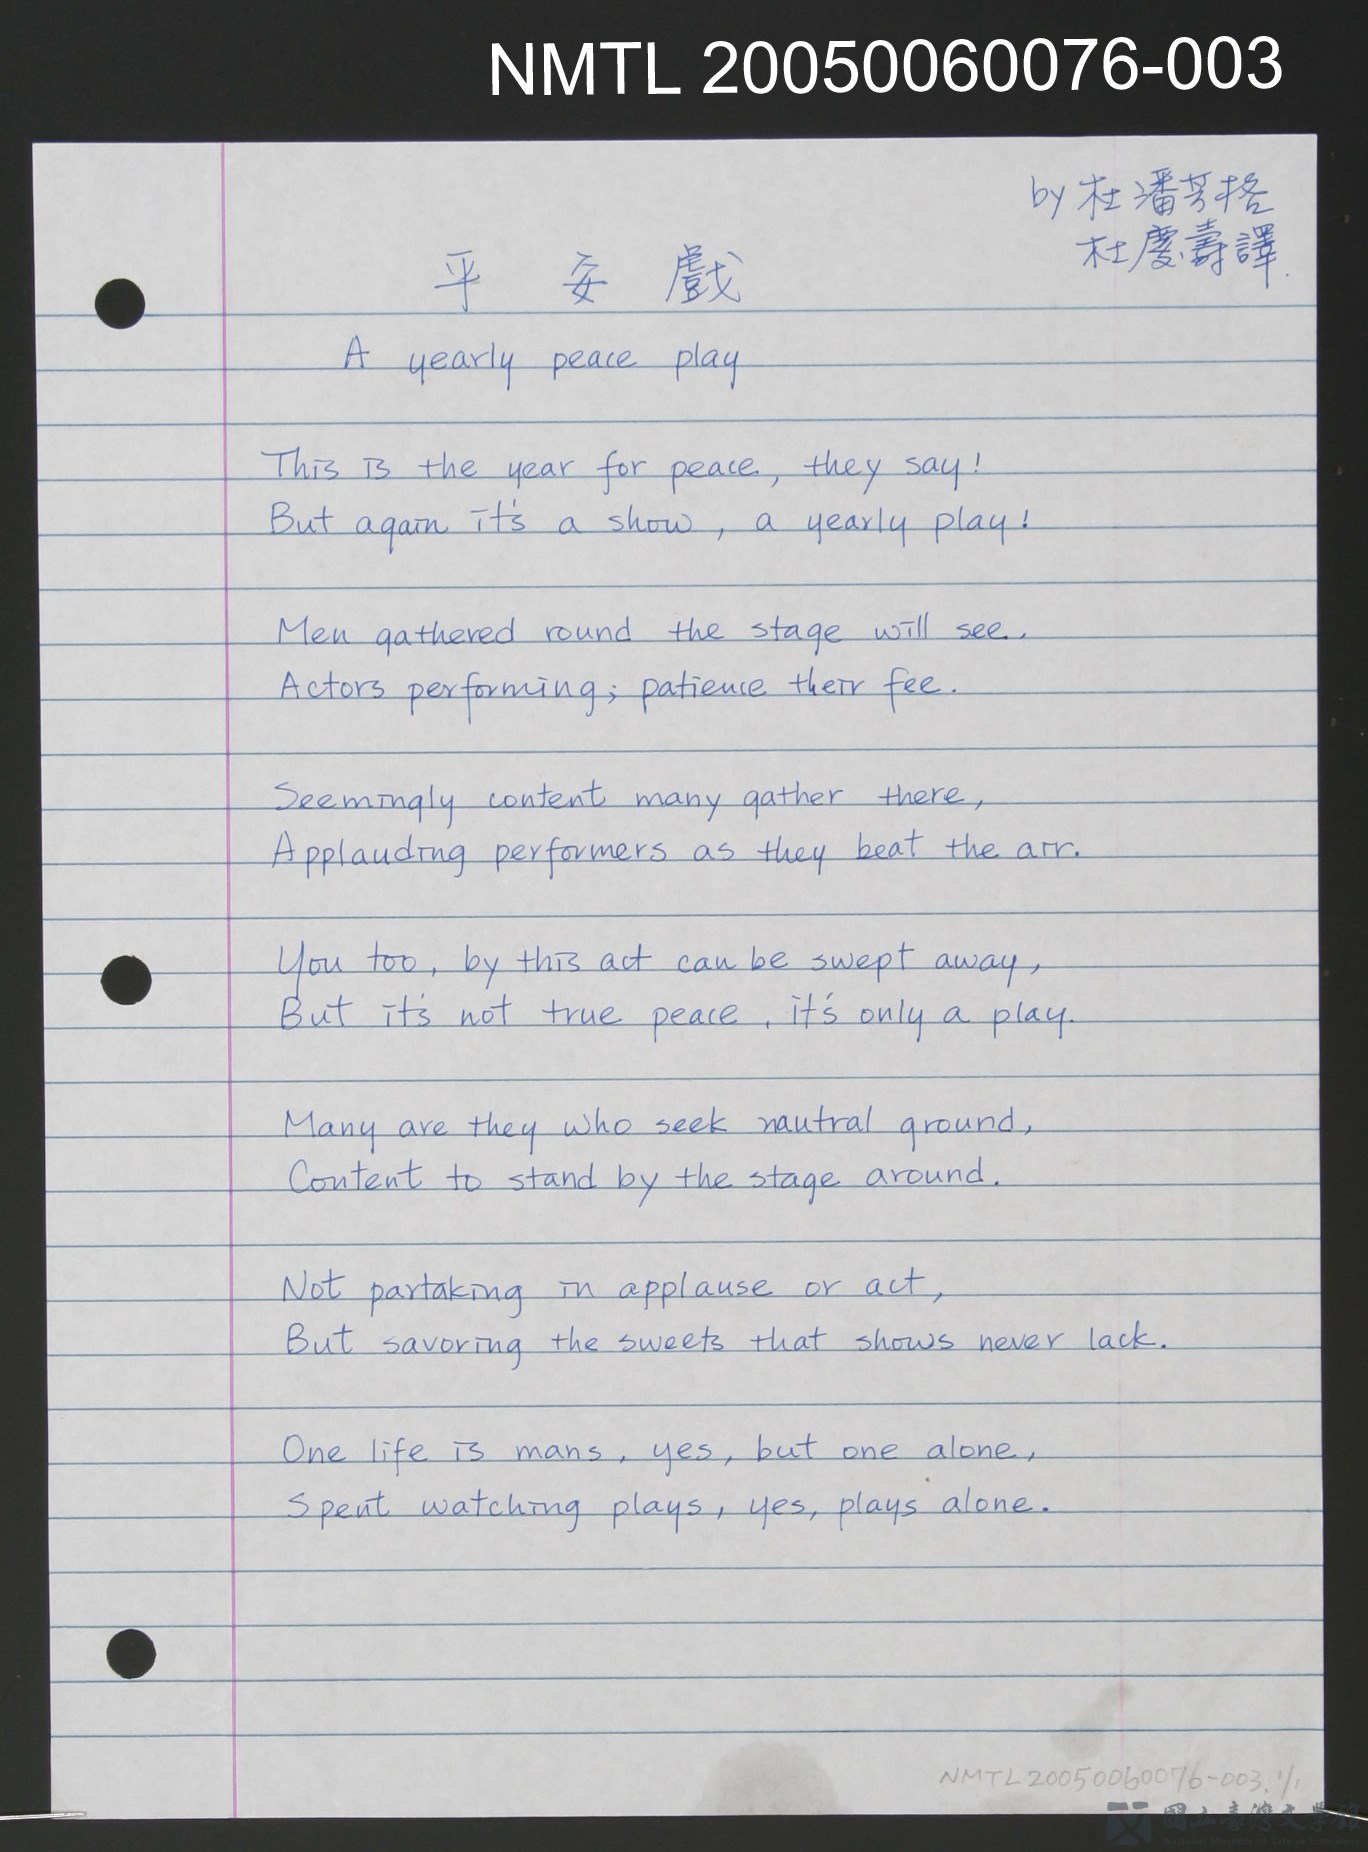 NMTL 20050060076-003
by 杜潘芳格
杜慶壽譯.
平安戲
A yearly peace play
This is the year for peace, they say!
But again it's a show, a yearly play!
Men gathered round the stage will see.
Actors performing; patience their fee.
Seemingly content many gather there,
Applauding performers as they beat the air.
You too, by this act can be swept away,
But it's not true peace, it's only a play.
Many are they who seek nautral ground,
Content to stand by the stage around.
Not partaking in applause or act,
But savoring the sweets that shows never lack.
One life is mans, yes, but one alone,
Spent watching plays, yes, plays alone.
NMTL 20050060076-003.1/1
國立臺灣文學館
National Museum of Taiwan Literature